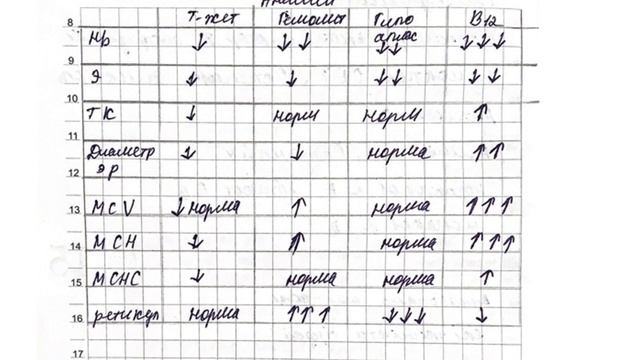 Анемии
Т-жет Гемолит Гипо аплас В12
8
Hb ↓ ↓↓ ↓↓ ↓↓↓
9
Э ↓ ↓ ↓↓ ↓↓
10
ТК ↓ норм норм ↑
11
Диаметр эр ↓ ↓ норма ↑↑
12
13 MCV ↓ норма ↑ норма ↑↑↑
14 MCH ↓ ↑ норма ↑↑↑
MCHC ↓ норма норма ↑
15
ретикул норма ↑↑↑ ↓↓↓ ↓
16
17